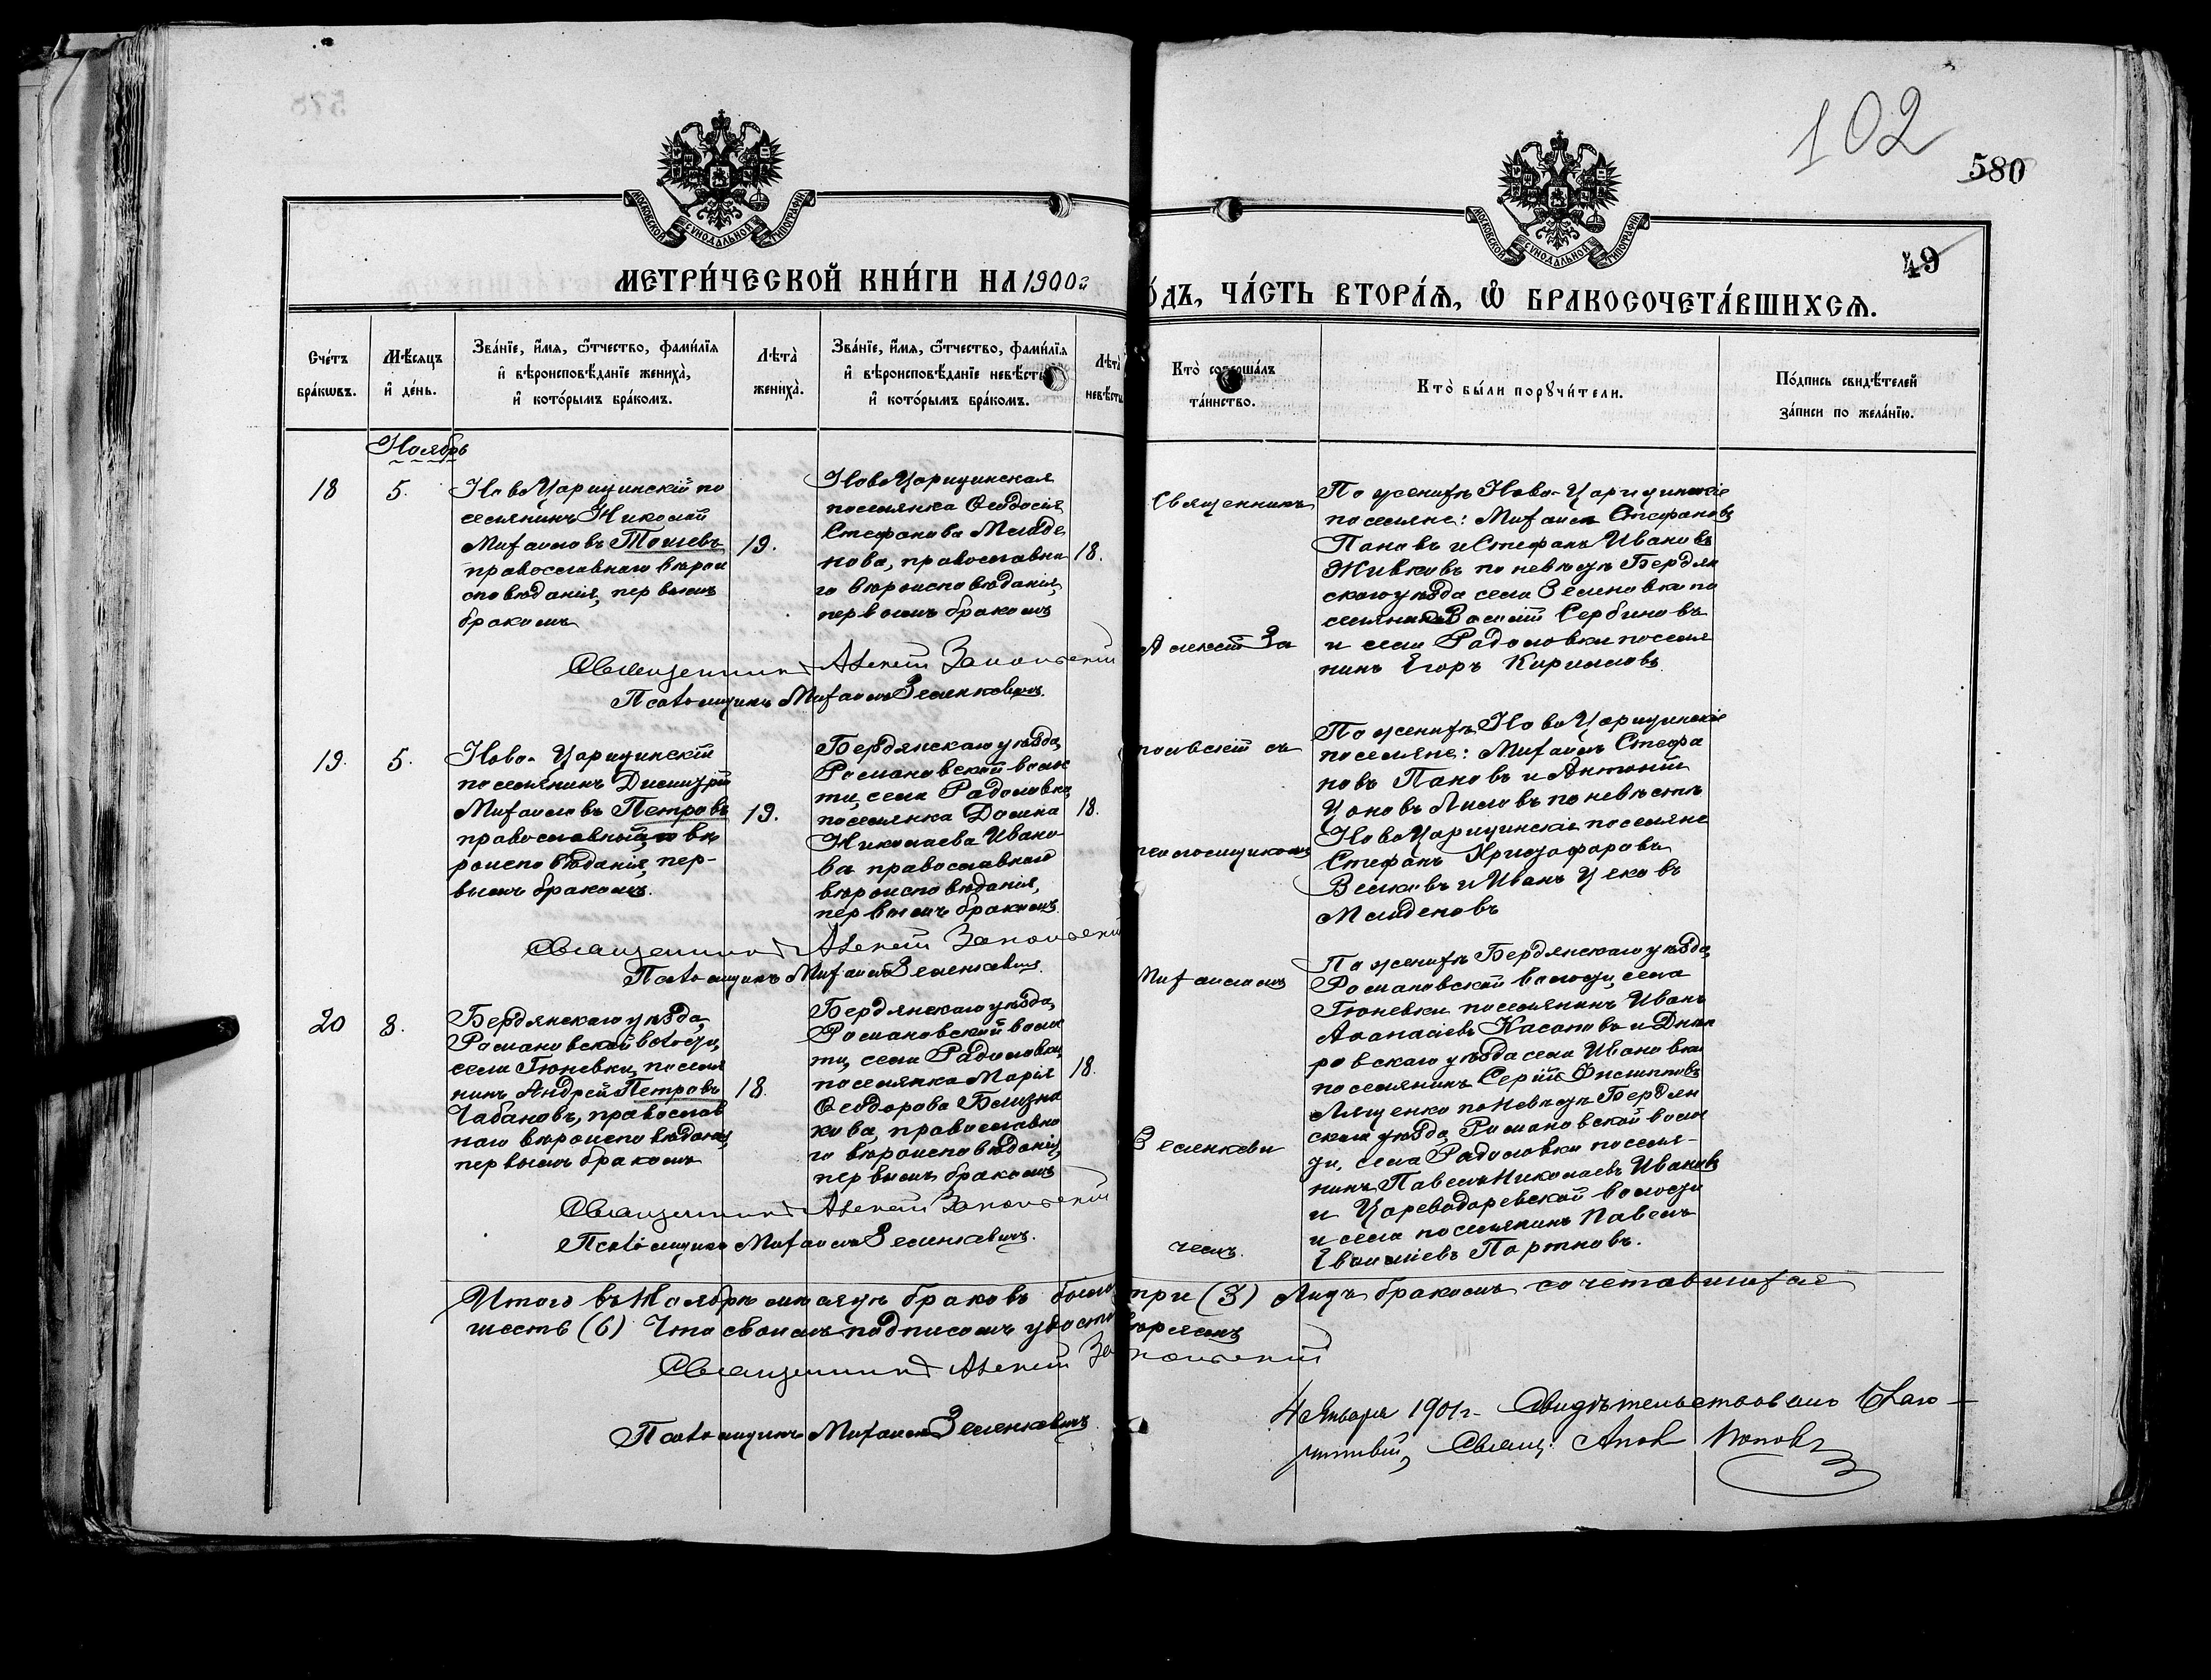 102
580
49
МОСКОВСКОЙ СУНОДАЛЬНОЙ ТИПОГРАФИИ
МОСКОВСКОЙ СУНОДАЛЬНОЙ ТИПОГРАФИИ
МЕТРИ́ЧЕСКОЙ КНИ́ГИ НА 1900й
О́ДЪ, ЧА́СТЬ ВТОРА́Ѧ, Ѽ БРАКОСОЧЕТА́ВШИХСѦ.
Сче́тъ бра́кѡвъ.
Мѣ́сяцъ и҆ де́нь.
Зва́нїе, и҆́мѧ, ѻ҆́тчество, фами́лїѧ и҆ вѣроисповѣ́данїе жениха̀, и҆ кото́рымъ бра́комъ.
Лѣта̀ жениха̀.
Зва́нїе, и҆́мѧ, ѻ҆́тчество, фами́лїѧ и҆ вѣроисповѣ́данїе невѣ́сты, и҆ кото́рымъ бра́комъ.
Лѣта̀ невѣ́сты
Кто̀ соверша́лъ та́инство.
Кто̀ бы́ли порꙋчи́тели.
По́дпись свидѣ́телей за́писи по жела́нїю.
Ноябрь
18
5.
НовоЦарицинскій по
селянинъ Николай
Михаиловъ Тошевъ
православнаго вѣрои
сповѣданія, первымъ
бракомъ
19.
НовоЦарицинская
поселянка Ѳеодосія
Стефанова Младе
нова, православна
го вѣроисповѣданія,
первымъ бракомъ
18.
Священникъ
Алексій За
По женихѣ Ново-Царицинскіе
поселяне: Михаилъ Стефановъ
Пановъ и Стефанъ Ивановъ
Живковъ по невѣстѣ Бердян
скаго уѣзда села Зеленовки по
селянинъ Василій Сербиновъ
и села Радоловки поселя
нинъ Егоръ Кириловъ
Священникъ Алексій Запольскій
Псаломщикъ Михаилъ Зеленкевичъ.
19.
5.
Ново-Царицинскій
поселянинъ Димитрій
Михаиловъ Петровъ
православнаго вѣ
роисповѣданія, пер-
вымъ бракомъ.
19.
Бердянскаго уѣзда,
Романовской волос
ти, села Радоловки,
поселянка Домна
Николаева Ивано
ва православнаго
вѣроисповѣданія,
первымъ бракомъ
18.
польскій съ
псаломщикомъ
По женихѣ НовоЦарицинскіе
поселяне: Михаилъ Стефа
новъ Пановъ и Антоній
Цоновъ Лиловъ по невѣстѣ
НовоЦарицинскіе поселяне
Стефанъ Христофоровъ
Велковъ и Иванъ Цековъ
Младеновъ
Священникъ Алексій Запольскій
Псаломщикъ Михаилъ Зеленкевичъ.
20
8.
Бердянскаго уѣзда,
Романовской волости,
села Гюневки, поселя
нинъ Андрей Петровъ
Чабановъ, православ
наго вѣроисповѣданія,
первымъ бракомъ
18.
Бердянскаго уѣзда,
Романовской волос
ти, села Радоловки,
поселянка Марія
Ѳеодорова Близна
кова, православна
го вѣроисповѣданія,
первымъ бракомъ
18.
Михаиломъ
Зеленкеви
чемъ.
По женихѣ Бердянскаго уѣзда,
Романовской волости, села
Гюневки поселянинъ Иванъ
Аѳанасіевъ Касаповъ и Днѣп
ровскаго уѣзда села Ивановки
поселянинъ Сергій Филипповъ
Лященко по невѣстѣ Бердян
скаго уѣзда, Романовской волос
ти, села Радоловки поселя-
нинъ Павелъ Николаевъ Ивановъ
и Цареводаревской волости
и села поселянинъ Павелъ
Евоиміевъ Портновъ.
Священникъ Алексій Запольскій
Псаломщикъ Михаилъ Зеленкевичъ.
Итого въ Ноябрѣ мѣсяцѣ браковъ было три (3) Лицъ бракомъ сочетавшихся
шесть (6) Что своимъ подписомъ удостовѣряемъ
Священникъ Алексій Запольскій
Псаломщикъ Михаилъ Зеленкевичъ
4 Января 1901 г. Свидѣтельствовалъ Благо-
чинный, Свящ. Попов